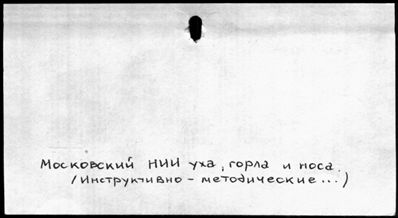 Московский НИИ уха, горла и носа.
/Инструктивно - методические...)